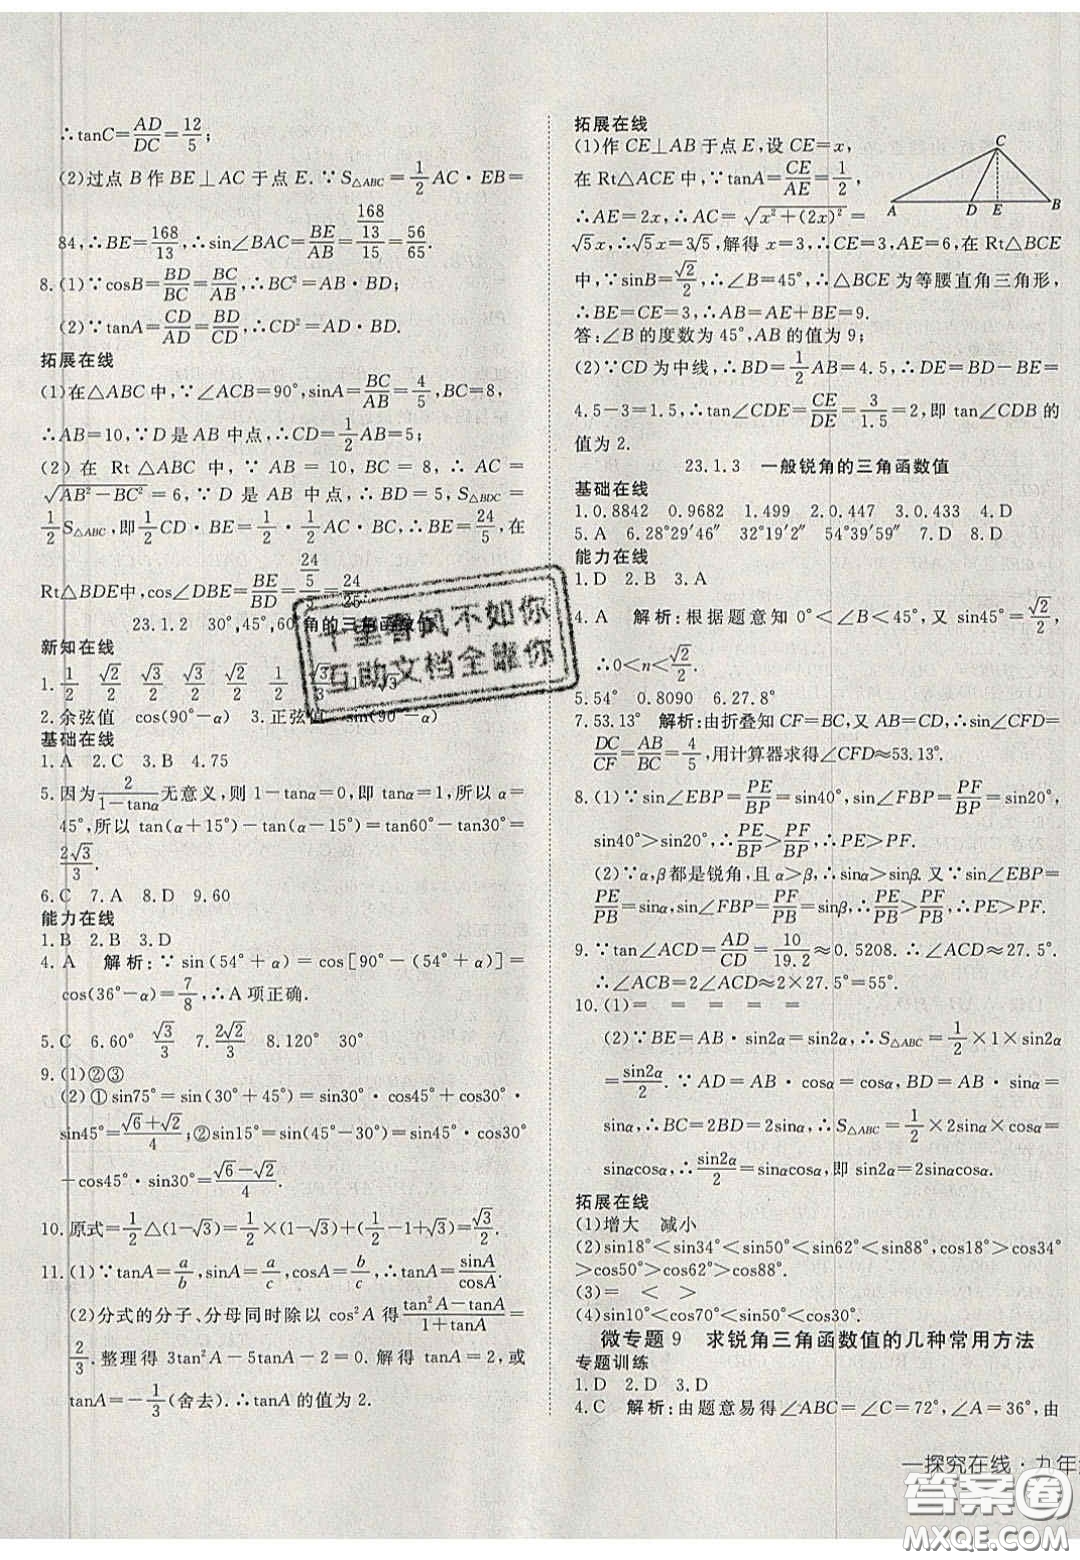 ∴tanC=AD/DC=12/5;
(2)过点 B 作 BE⊥AC 于点 E. ∵S△ABC=1/2 AC·EB=
84,∴BE=168/13,∴sin∠BAC=BE/AB=(168/13)/15=56/65.
8.(1)∵cosB=BD/BC=BC/AB,∴BC²=AB·BD;
(2)∵tanA=CD/AD=BD/CD,∴CD²=AD·BD.
拓展在线
(1)在△ABC 中,∵∠ACB=90°,sinA=BC/AB=4/5,BC=8,
∴AB=10,∵D 是 AB 中点,∴CD=1/2 AB=5;
(2) 在 Rt △ABC 中, ∵ AB = 10, BC = 8, ∴ AC =
√(AB²-BC²)=6,∵D 是 AB 中点,∴BD=5,S△BDC=
1/2 S△ABC,即1/2 CD·BE=1/2·1/2 AC·BC,∴BE=24/5,在
Rt△BDE中,cos∠DBE=BE/BD=(24/5)/5=24/25.
23.1.2 30°,45°,60°角的三角函数值
新知在线
1.1/2 √2/2 √3/2 √3/2 √2/2 1/2 √3/3 1 √3
2.余弦值 cos(90°-α) 3.正弦值 sin(90°-α)
基础在线
1.A 2.C 3.B 4.75
5.因为2/(1-tanα)无意义,则 1-tanα=0,即 tanα=1,所以 α=
45°,所以 tan(α+15°)-tan(α-15°)=tan60°-tan30°=
2√3/3.
6.C 7.A 8.D 9.60
能力在线
1.B 2.B 3.D
4.A 解析:∵ sin(54°+α)=cos[90°-(54°+α)]=
cos(36°-α)=7/8,∴A 项正确.
5.C 6.60° √3/3 7.2√2/3 8.120° 30°
9.(1)②③
(2)①sin75°=sin(30°+45°)=sin30°·cos45°+cos30°·
sin45°=(√6+√2)/4;②sin15°=sin(45°-30°)=sin45°·cos30°
-cos45°·sin30°=(√6-√2)/4.
10.原式=1/2△(1-√3)=1/2×(1-√3)+(1/2-1+√3)=√3/2.
11.(1)∵tanA=a/b,sinA=a/c,cosA=b/c,∴tanA=sinA/cosA.
(2)分式的分子、分母同时除以 cos²A 得(tan²A-tanA)/(1+tanA)=
2/3.整理得 3tan²A-5tanA-2=0.解得 tanA=2,或
tanA=-1/3(舍去).∴tanA 的值为 2.
拓展在线
(1)作 CE⊥AB 于点 E,设 CE=x,
在 Rt△ACE 中,∵tanA=CE/AE=1/2,
∴AE=2x,∴AC=√(x²+(2x)²)=
√5x,∴√5x=3√5,解得 x=3,∴CE=3,AE=6,在 Rt△BCE
中,∵sinB=√2/2,∴∠B=45°,∴△BCE 为等腰直角三角形,
∴BE=CE=3,∴AB=AE+BE=9.
答:∠B 的度数为 45°,AB 的值为 9;
A D E B C
(2)∵CD 为中线,∴BD=1/2 AB=4.5,∴DE=BD-BE=
4.5-3=1.5,∴tan∠CDE=CE/DE=3/1.5=2,即 tan∠CDB 的
值为 2.
23.1.3 一般锐角的三角函数值
基础在线
1.0.8842 0.9682 1.499 2.0.447 3.0.433 4.D
5.A 6.28°29′46″ 32°19′2″ 54°39′59″ 7.D 8.D
能力在线
1.D 2.B 3.A
4.A 解析:根据题意知 0°<∠B<45°,又∵sin45°=√2/2,
∴0<n<√2/2.
5.54° 0.8090 6.27.8°
7.53.13° 解析:由折叠知 CF=BC,又 AB=CD,∴sin∠CFD=
DC/CF=AB/BC=4/5,用计算器求得∠CFD≈53.13°.
8.(1)∵sin∠EBP=PE/BP=sin40°,sin∠FBP=PF/BP=sin20°,
sin40°>sin20°,∴PE/BP>PF/BP,∴PE>PF.
(2)∵α,β都是锐角,且 α>β,∴sinα>sinβ.又∵sin∠EBP=
PE/PB=sinα,sin∠FBP=PF/PB=sinβ,∴PE/PB>PF/PB,∴PE>PF.
9.∵tan∠ACD=AD/CD=10/19.2≈0.5208.∴∠ACD≈27.5°.
∴∠ACB=2∠ACD≈2×27.5°=55°.
10.(1)= = = = =
(2)∵BE=AB·sin2α=sin2α,∴S△ABC=1/2×1×sin2α
=sin2α/2.∵AD=AB·cosα=cosα,BD=AB·sinα=
sinα,∴BC=2BD=2sinα,∴S△ABC=1/2×2sinα·cosα=
sinαcosα,∴sin2α/2=sinαcosα,即 sin2α=2sinαcosα.
拓展在线
(1)增大 减小
(2)sin18°<sin34°<sin50°<sin62°<sin88°,cos18°>cos34°
>cos50°>cos62°>cos88°.
(3)= < >
(4)sin10°<cos70°<sin50°<cos30°.
微专题 9 求锐角三角函数值的几种常用方法
专题训练
1.D 2.D 3.D
4.C 解析:由题意易得∠ABC=∠C=72°,∠A=36°,由
一探究在线·九年
千里春风不如你
互助文档全靠你
答案圈
MXQE.COM